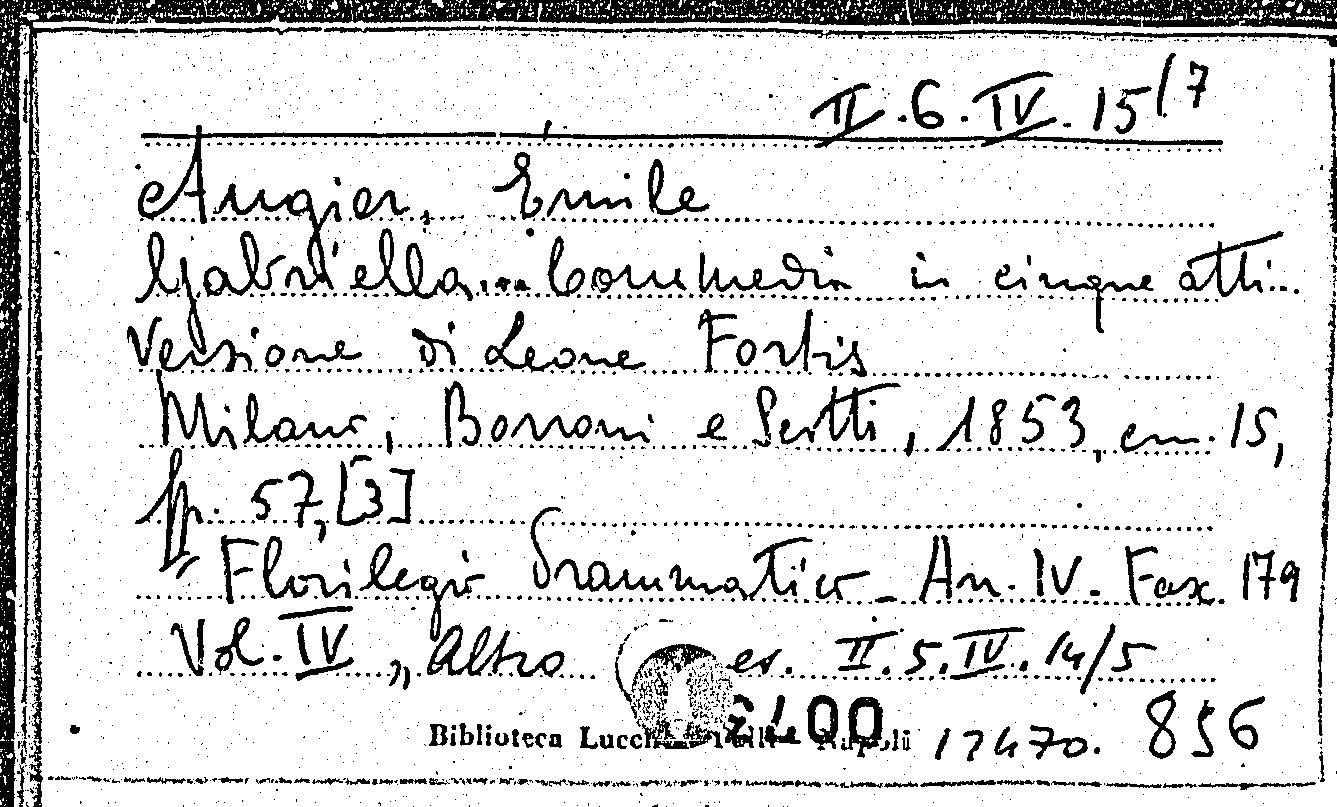 II.6.IV.15/7
Augier, Émile
Gabriella... Commedia in cinque atti...
Versione di Leone Fortis
Milano, Borroni e Scotti, 1853, cm. 15,
pp. 57,[3]
Florilegio Drammatico - An. IV. Fasc 179
Vol. IV, Altro es. II.5.IV.14/5
Biblioteca Lucchesi Palli - Napoli 17470. 856